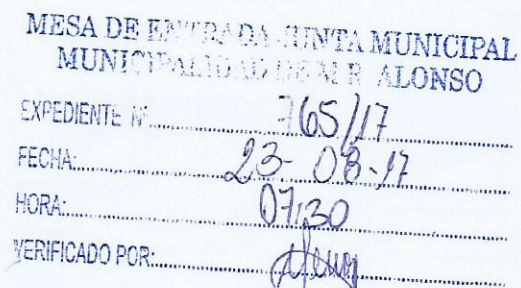 MESA DE ENTRADA JUNTA MUNICIPAL
MUNICIPALIDAD DE M R ALONSO
EXPEDIENTE Nº 765/17
FECHA: 23-08-17
HORA: 07:30
VERIFICADO POR: